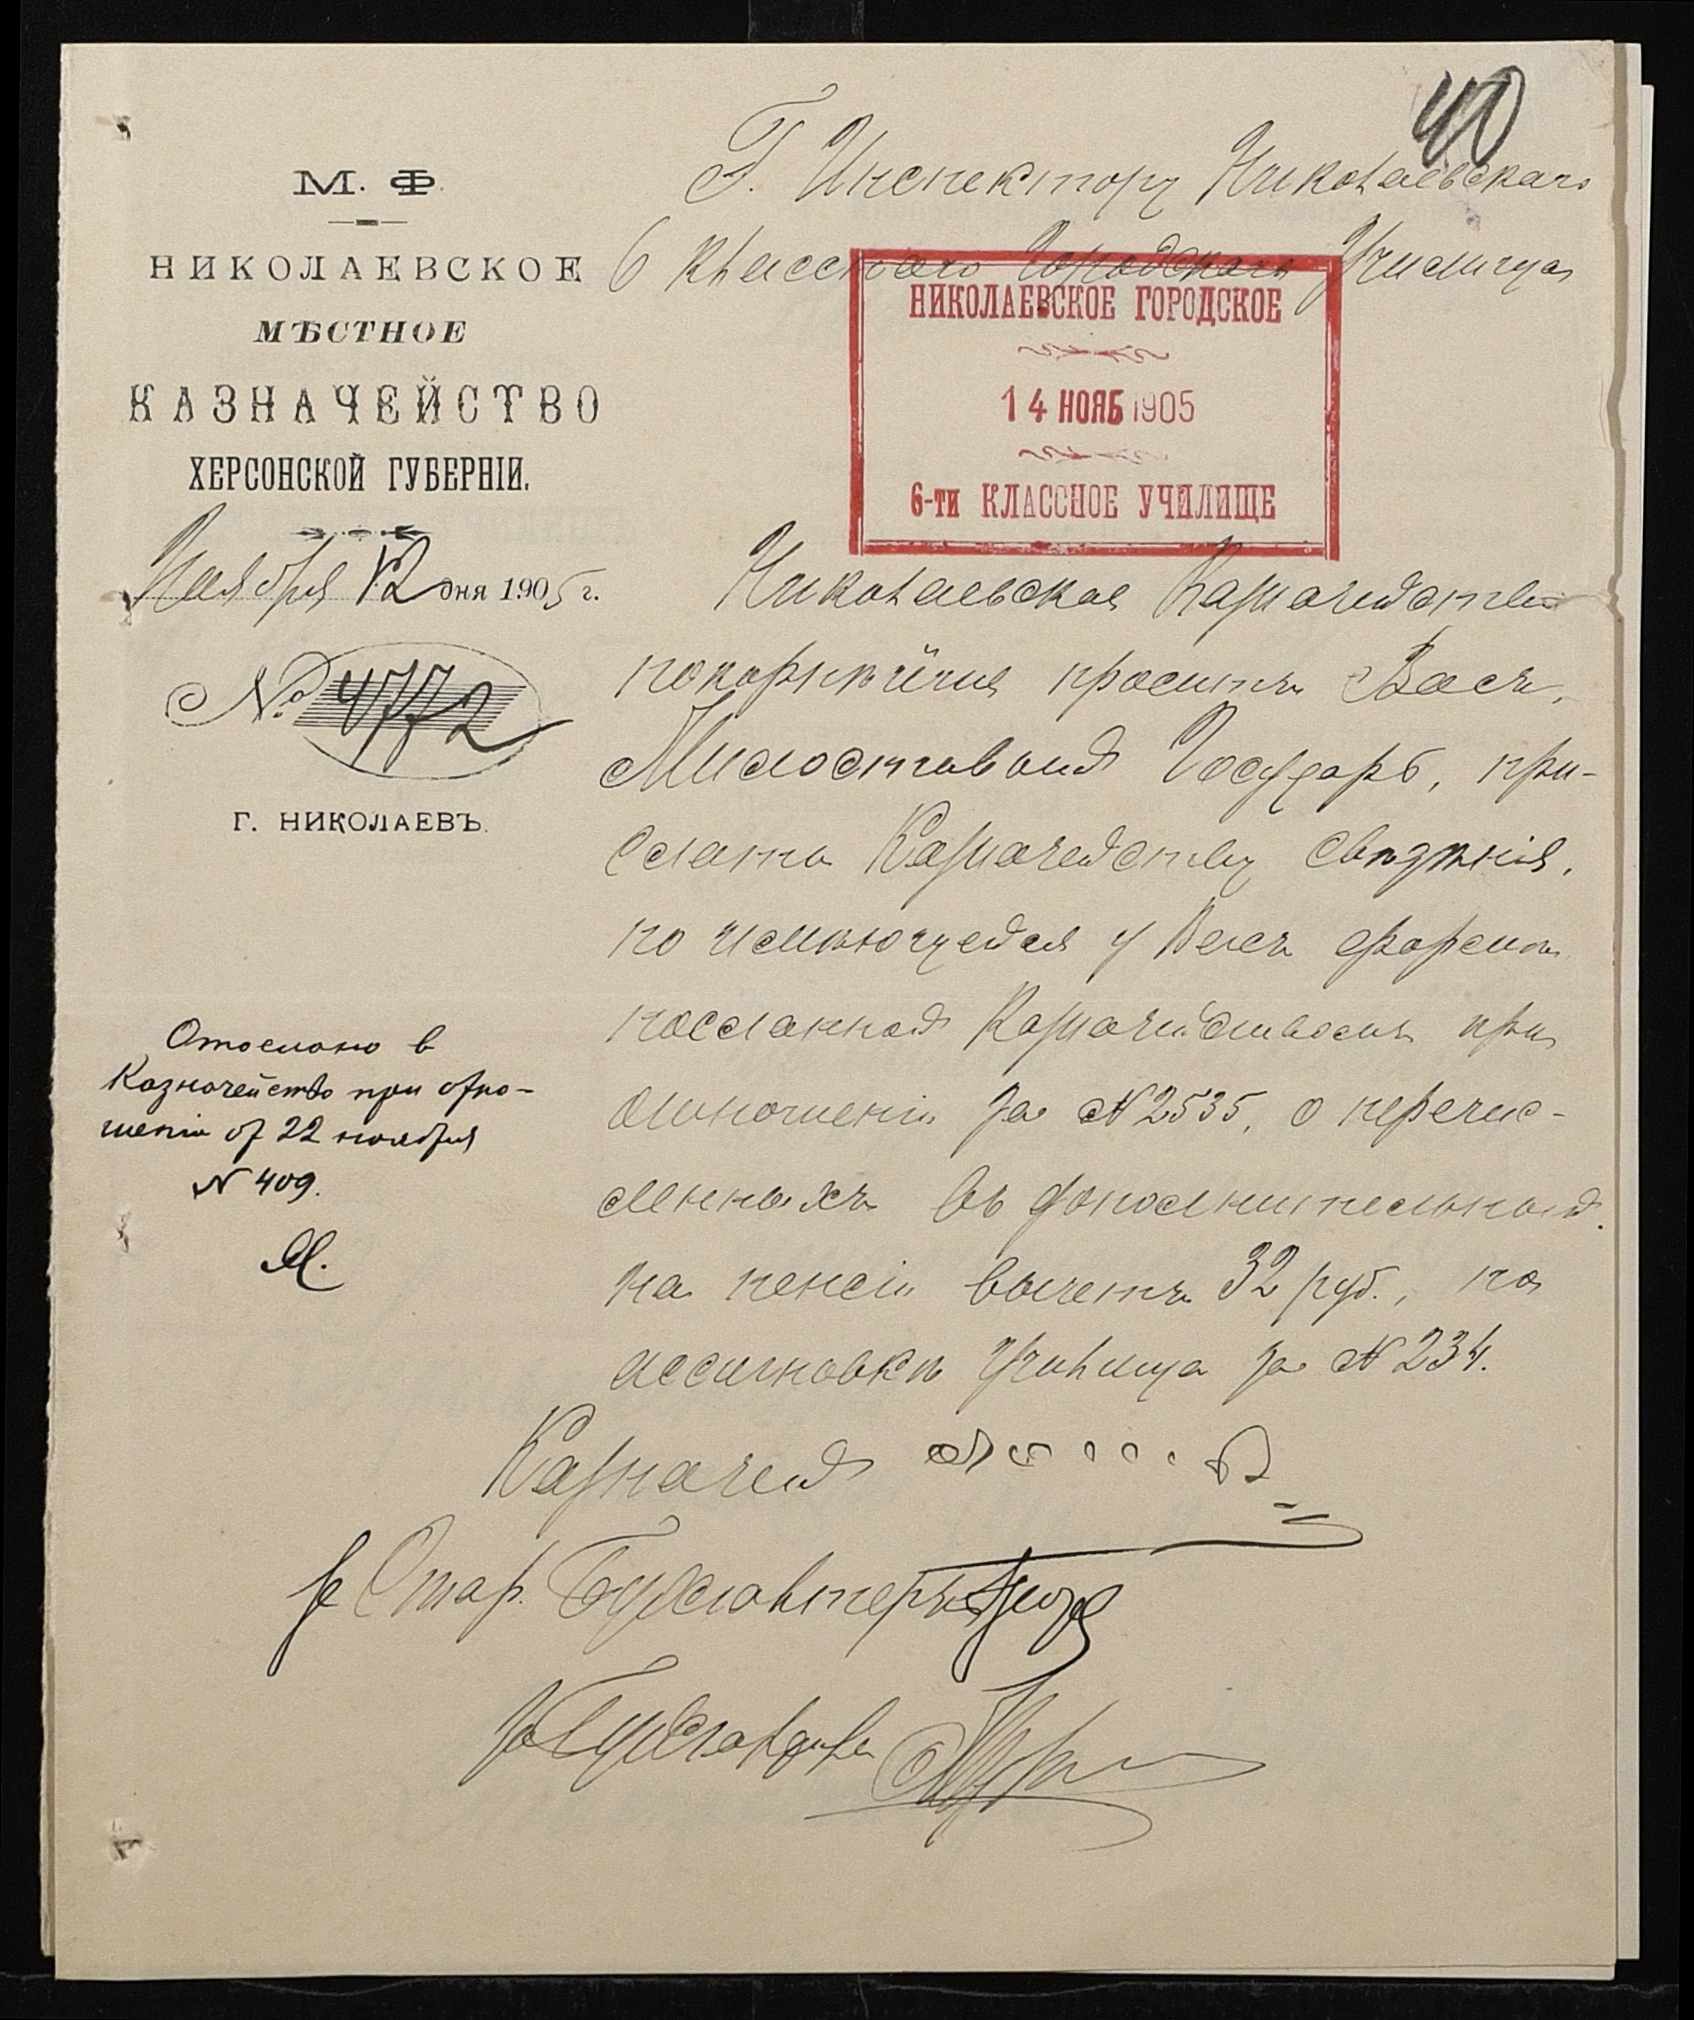 40
М. Ф.
НИКОЛАЕВСКОЕ
МѢСТНОЕ
КАЗНАЧЕЙСТВО
ХЕРСОНСКОЙ ГУБЕРНІИ.
Ноября 12 дня 1905 г.
№ 4772
Г. НИКОЛАЕВЪ.
Г. Инспектору Николаевскаго
6 классного Городского Училища
НИКОЛАЕВСКОЕ ГОРОДСКОЕ
14 НОЯБ 1905
6-ти КЛАССНОЕ УЧИЛИЩЕ
Николаевское Казначейство
покорнѣйше проситъ Васъ,
Милостивый Государь, при-
слать Казначейству свѣдѣнія,
по имѣющейся у Васъ формѣ
посланной Казначействомъ при
отношеніи за № 2535, о перечис-
ленныхъ въ дополнительный
на пенсіи вычетъ 32 руб., по
ассигновкѣ Училища за № 234.
Казначей
Стар. Бухгалтеръ
за Бухгалтера
Отослано в
Казначейство при отно-
шеніи от 22 ноября
№ 409.